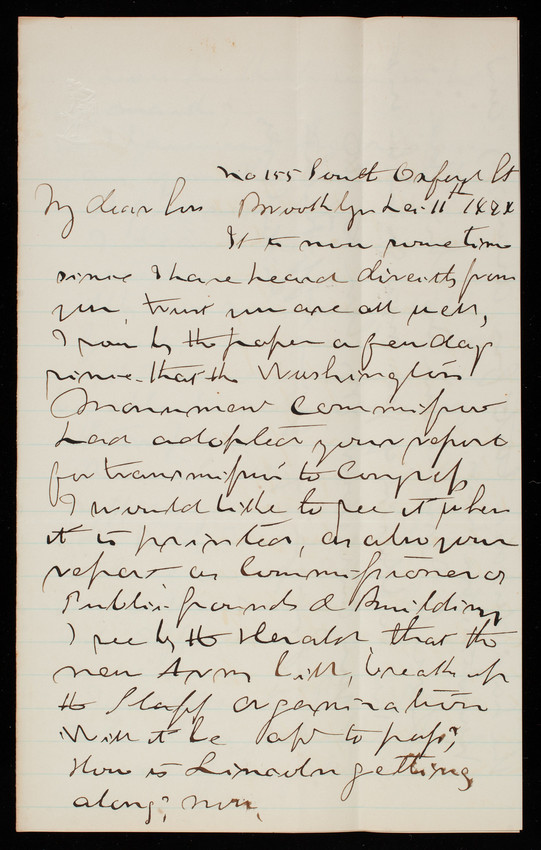 No 155 South Oxford St
My dear Brooklyn Dec 11th 1878
It is now sometime
since I have heard directly from
you, trust you are all well,
I saw by the paper a few days
since that the Washington
Monument Commission
had adopted your report
for transmission to Congress
I would like to see it when
it is printed, as also your
report as Commissioner of
Public grounds & Building
I see by the Herald, that the
new Army bill, breaks up
the Staff organization
Will it be apt to pass?
How is Lincoln getting
along, now.